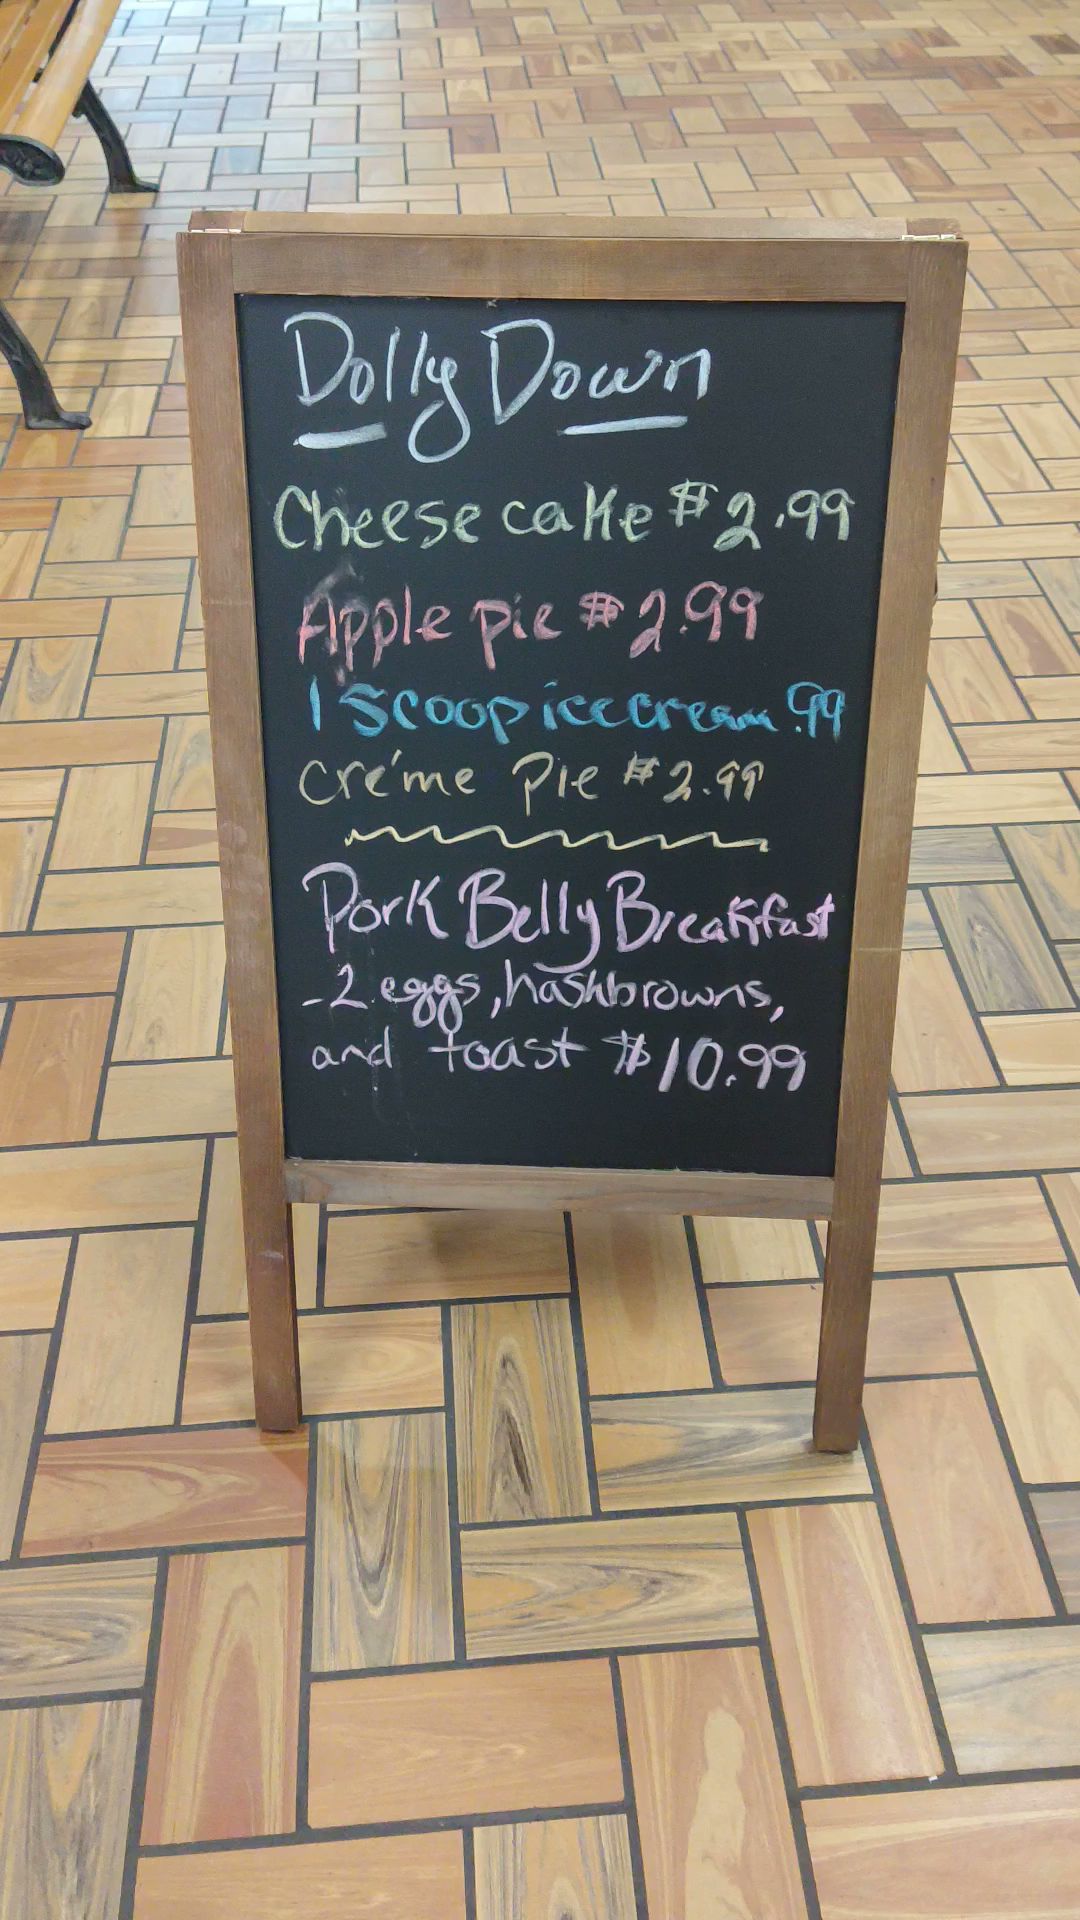 Dolly Down
Cheese cake $2.99
Apple pie $2.99
1 Scoop ice cream .99
cre'me Pie $2.99
Pork Belly Breakfast
- 2 eggs, hashbrowns,
and toast $10.99